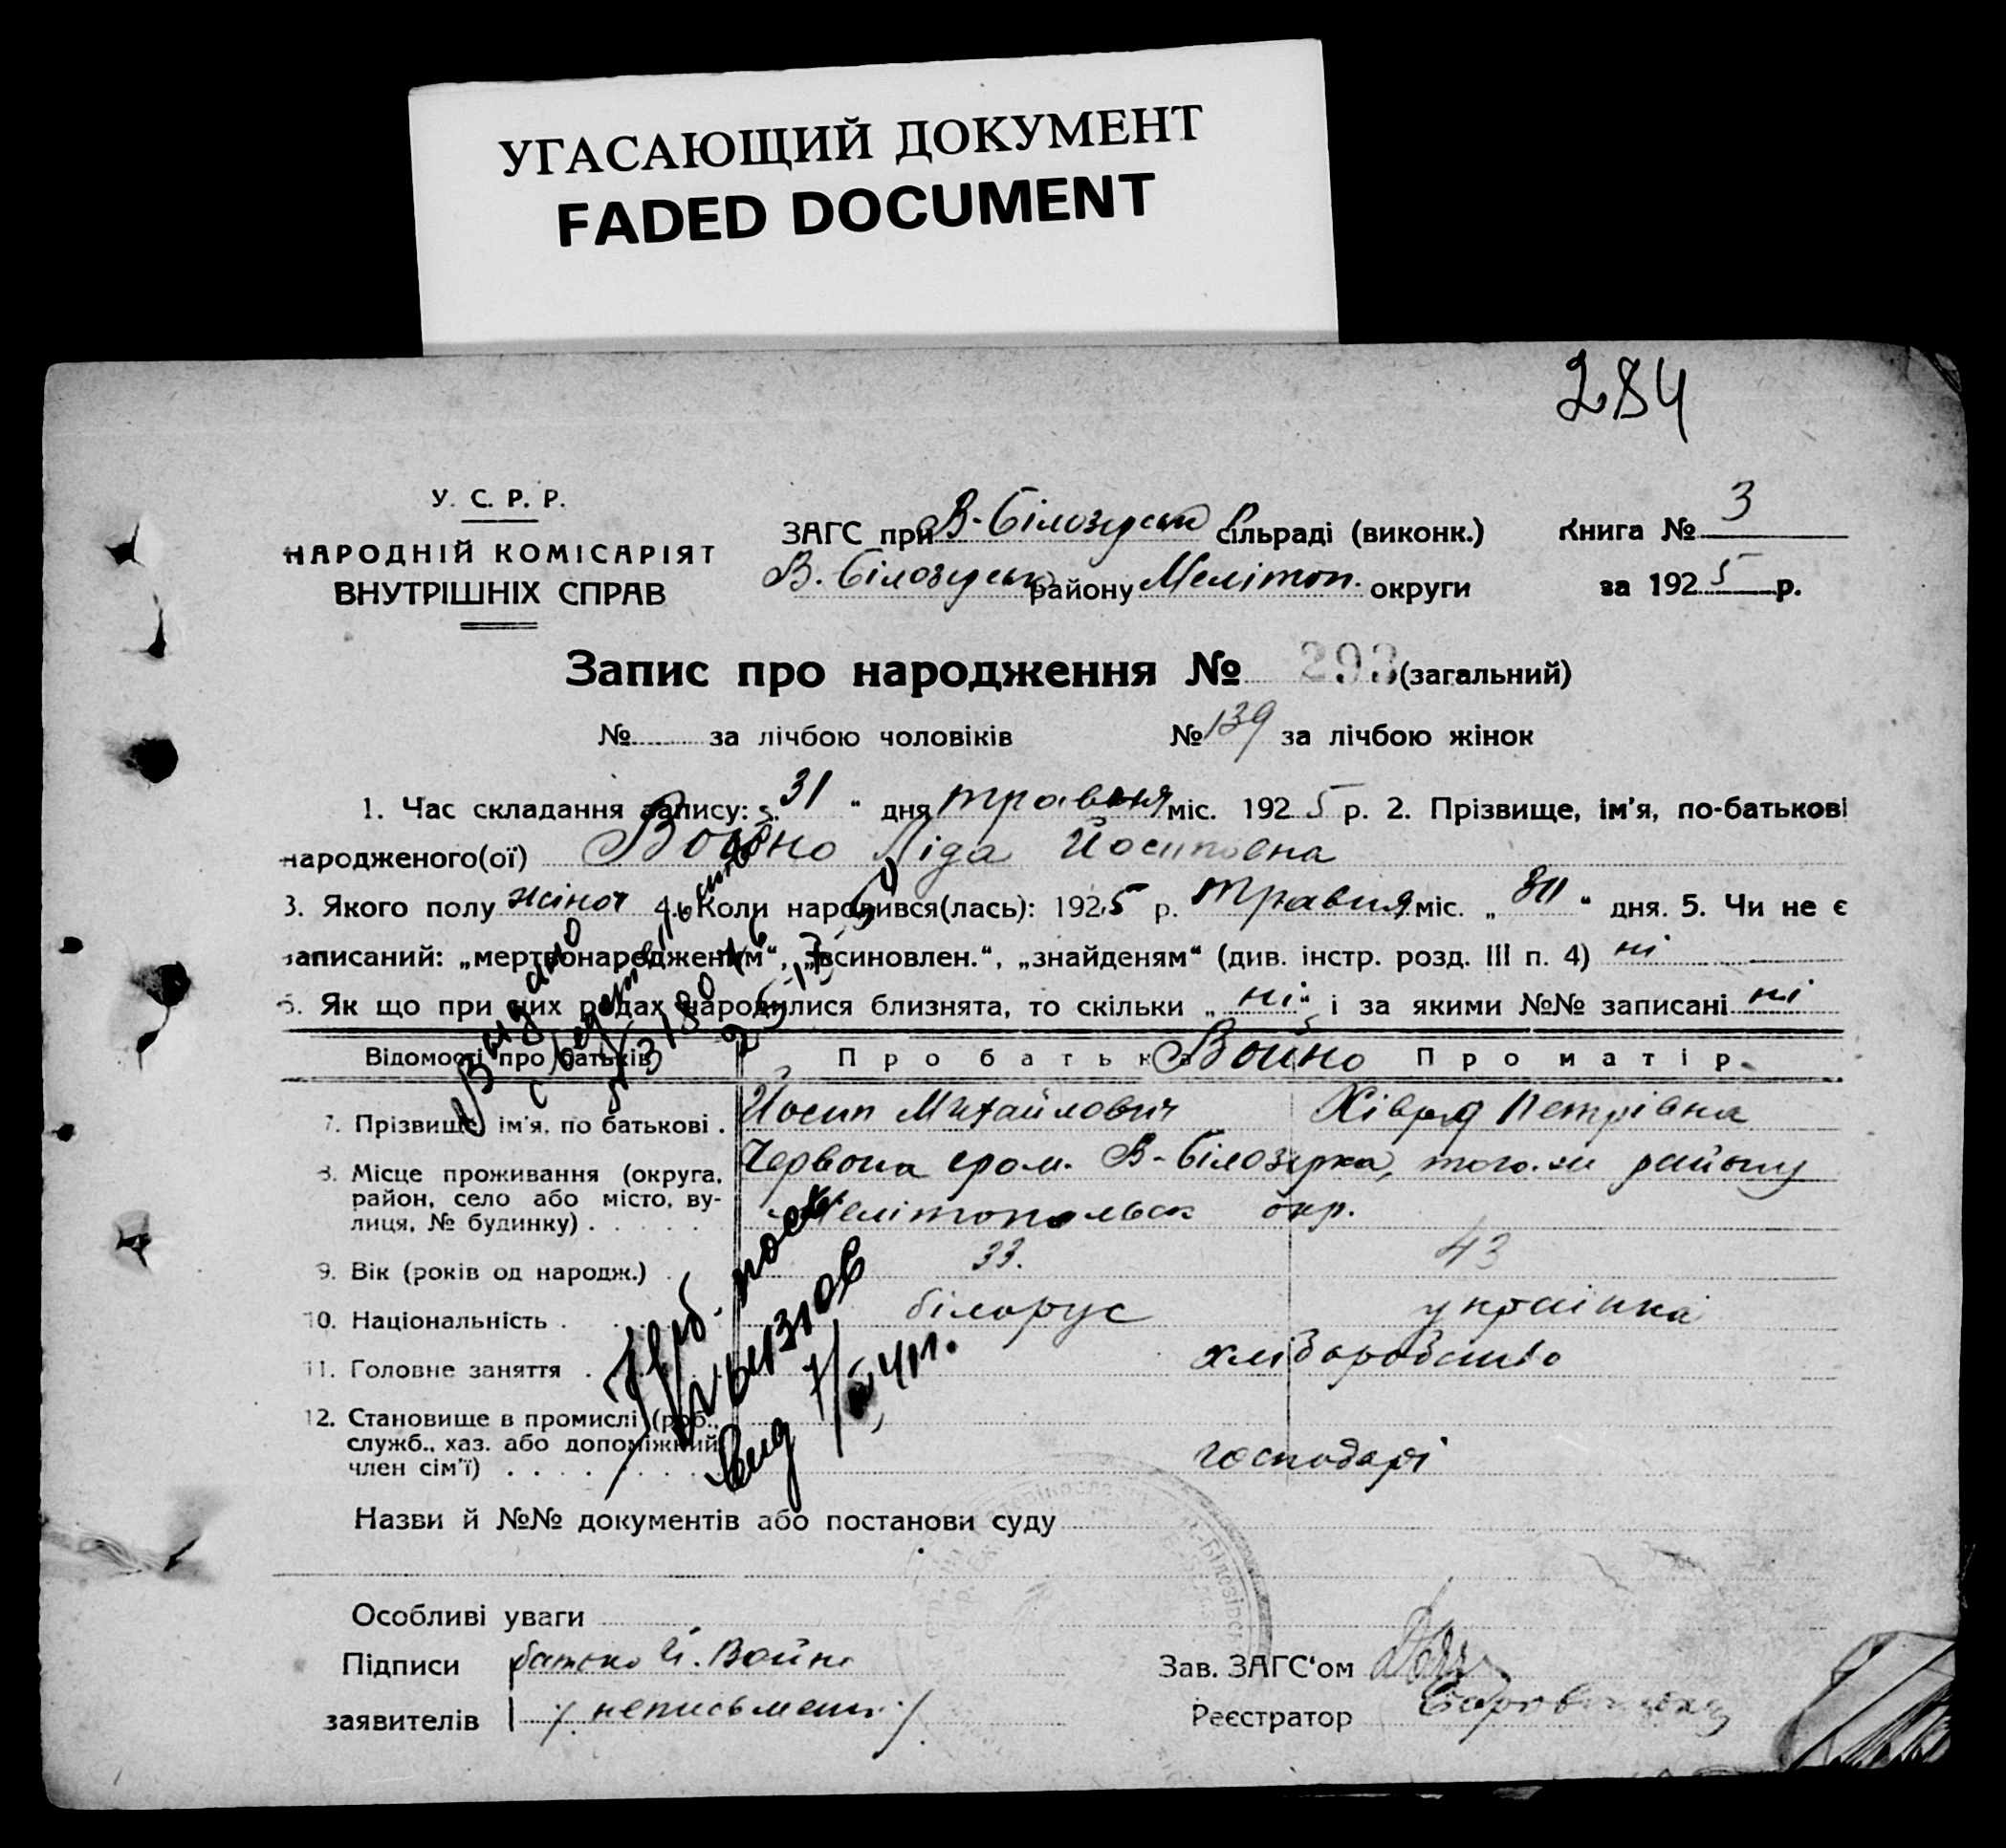 УГАСАЮЩИЙ ДОКУМЕНТ
FADED DOCUMENT
284
У. С. Р. Р.
НАРОДНІЙ КОМІСАРІЯТ
ВНУТРІШНІХ СПРАВ
ЗАГС при В-Білозерськ сільраді (виконк.)
В. Білозерськ району Мелітоп. округи
Книга № 3
за 1925 р.
Запис про народження № 293 (загальний)
№ за лічбою чоловіків № 139 за лічбою жінок
1. Час складання запису: „31“ дня травня міс. 1925 р. 2. Прізвище, ім'я, по-батькові
народженого(ої) Войно Ліда Йосиповна
3. Якого полу жіноч 4. Коли народився(лась): 1925 р. травня міс. „ “ дня. 5. Чи не є
записаний: „мертвонародженим“, „всиновлен.“, „знайденям“ (див. інстр. розд. III п. 4) ні
6. Як що при цих родах народилися близнята, то скільки „ні“ і за якими №№ записані ні
Відомості про батьків Про батька Войно Про матір
7. Прізвище, ім'я, по батькові . Йосип Михайлович Хівря Петрівна
8. Місце проживання (округа, район, село або місто, вулиця, № будинку) . . . . . Червона гром. В-Білозерка, того-ж району
Мелітопольськ окр.
9. Вік (років од народж.) . 33. 43
10. Національність . білорус українка
11. Головне заняття . хліборобство
12. Становище в промислі (роб., служб., хаз. або допоміжний член сім'ї) . . . . . . господарі
Видано
Назви й №№ документів або постанови суду
Особливі уваги
Підписи батько Й. Войно
заявителів / неписьмені /
Зав. ЗАГС'ом
Реєстратор